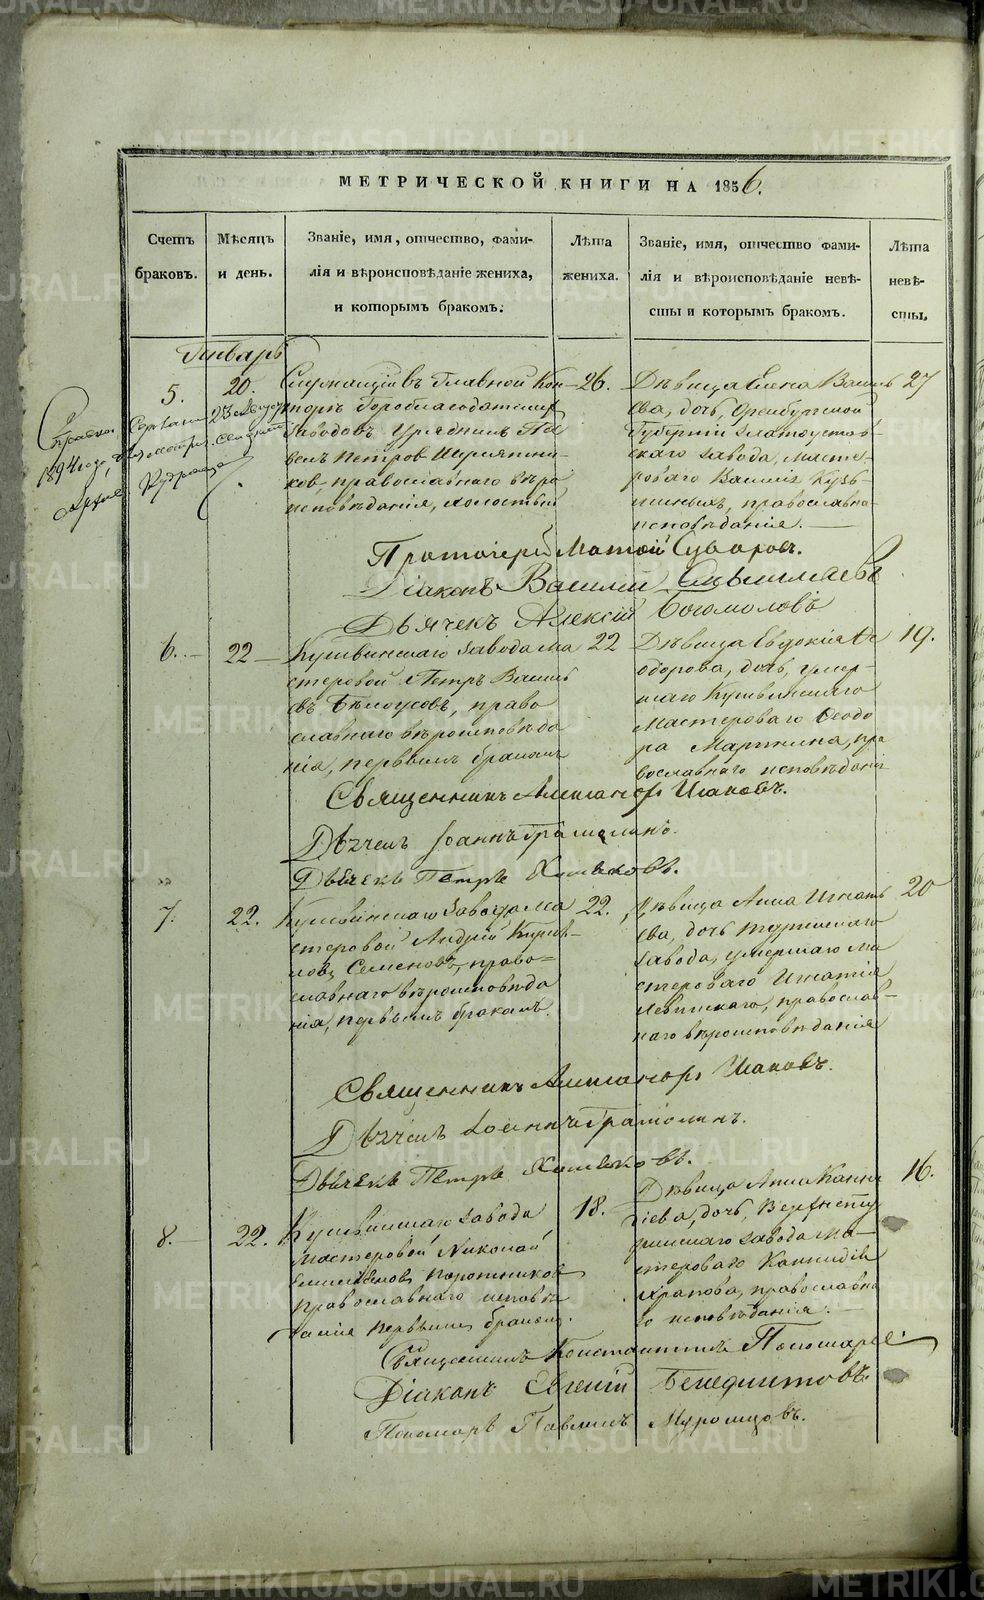 МЕТРИЧЕСКОЙ КНИГИ НА 1856.
Счетъ браковъ.
Мѣсяцъ и день.
Званіе, имя, отчество, фами-
лія и вѣроисповѣданіе жениха,
и которымъ бракомъ.
Лѣта жениха.
Званіе, имя, отчество фами-
лія и вѣроисповѣданіе невѣ-
сты и которымъ бракомъ.
Лѣта невѣ-
сты.
Генварь
5.
20.
Служащій въ Главной Кон-
торѣ Гороблагодатскихъ
Заводовъ Урядникъ Па
велъ Петровъ
ковъ, православнаго вѣро
исповѣданія, холостый
26.
Дѣвица Елена Василь
ева, дочь, Оренбургской
Губерніи Златоустов-
скаго завода, Масте-
роваго Василія Кузь-
миныхъ, православна-
исповѣданія.
27
Справка
1894 года
Протоіерей Матѳей Суваровъ.
Діаконъ Василій
Дьячекъ Алексій Богомоловъ
6.
22
Кушвинскаго завода Ма
стеровой Петръ Василь
евъ Бѣлоусовъ, право
славнаго вѣроисповѣда
нія, первымъ бракомъ
22
Дѣвица Евдокія Ѳе
одорова, дочь, умер-
шаго Кушвинскаго
Мастероваго Ѳеодо
ра Мартина, пра
вославнаго исповѣданія
19.
Священникъ Александръ Исаковъ.
Дьячекъ Іоаннъ Грамолинъ.
Дьячекъ Петръ Хлынковъ.
7.
22.
Кушвинскаго Завода Ма
стеровой Андрей Кирил-
ловъ Семеновъ, право=
славнаго вѣроисповѣда
нія, первымъ бракомъ.
22.
Дѣвица Анна Игнать
ева, дочь Туринскаго
завода, умершаго Ма
стероваго Игнатія
Левитскаго, православ-
наго вѣроисповѣданія
20
Священникъ Александръ Исаковъ.
Дьячекъ Іоаннъ Грамолинъ.
Дьячекъ Петръ Хлынковъ.
8.
22.
Кушвинскаго завода
Мастеровой Николай
Емельяновъ Коротниковъ
православнаго исповѣ
данія первымъ бракомъ.
18.
Дѣвица Анна Канди
діева, дочь, Верхнету
ринскаго завода Ма-
стероваго Кандидія
Храпова, православна
го исповѣданія.
16.
Священникъ Константинъ Пономаревъ.
Діаконъ Евгеній Бенедиктовъ
Пономарь Павлинъ Муромцовъ.
METRIKI.GASO-URAL.RU